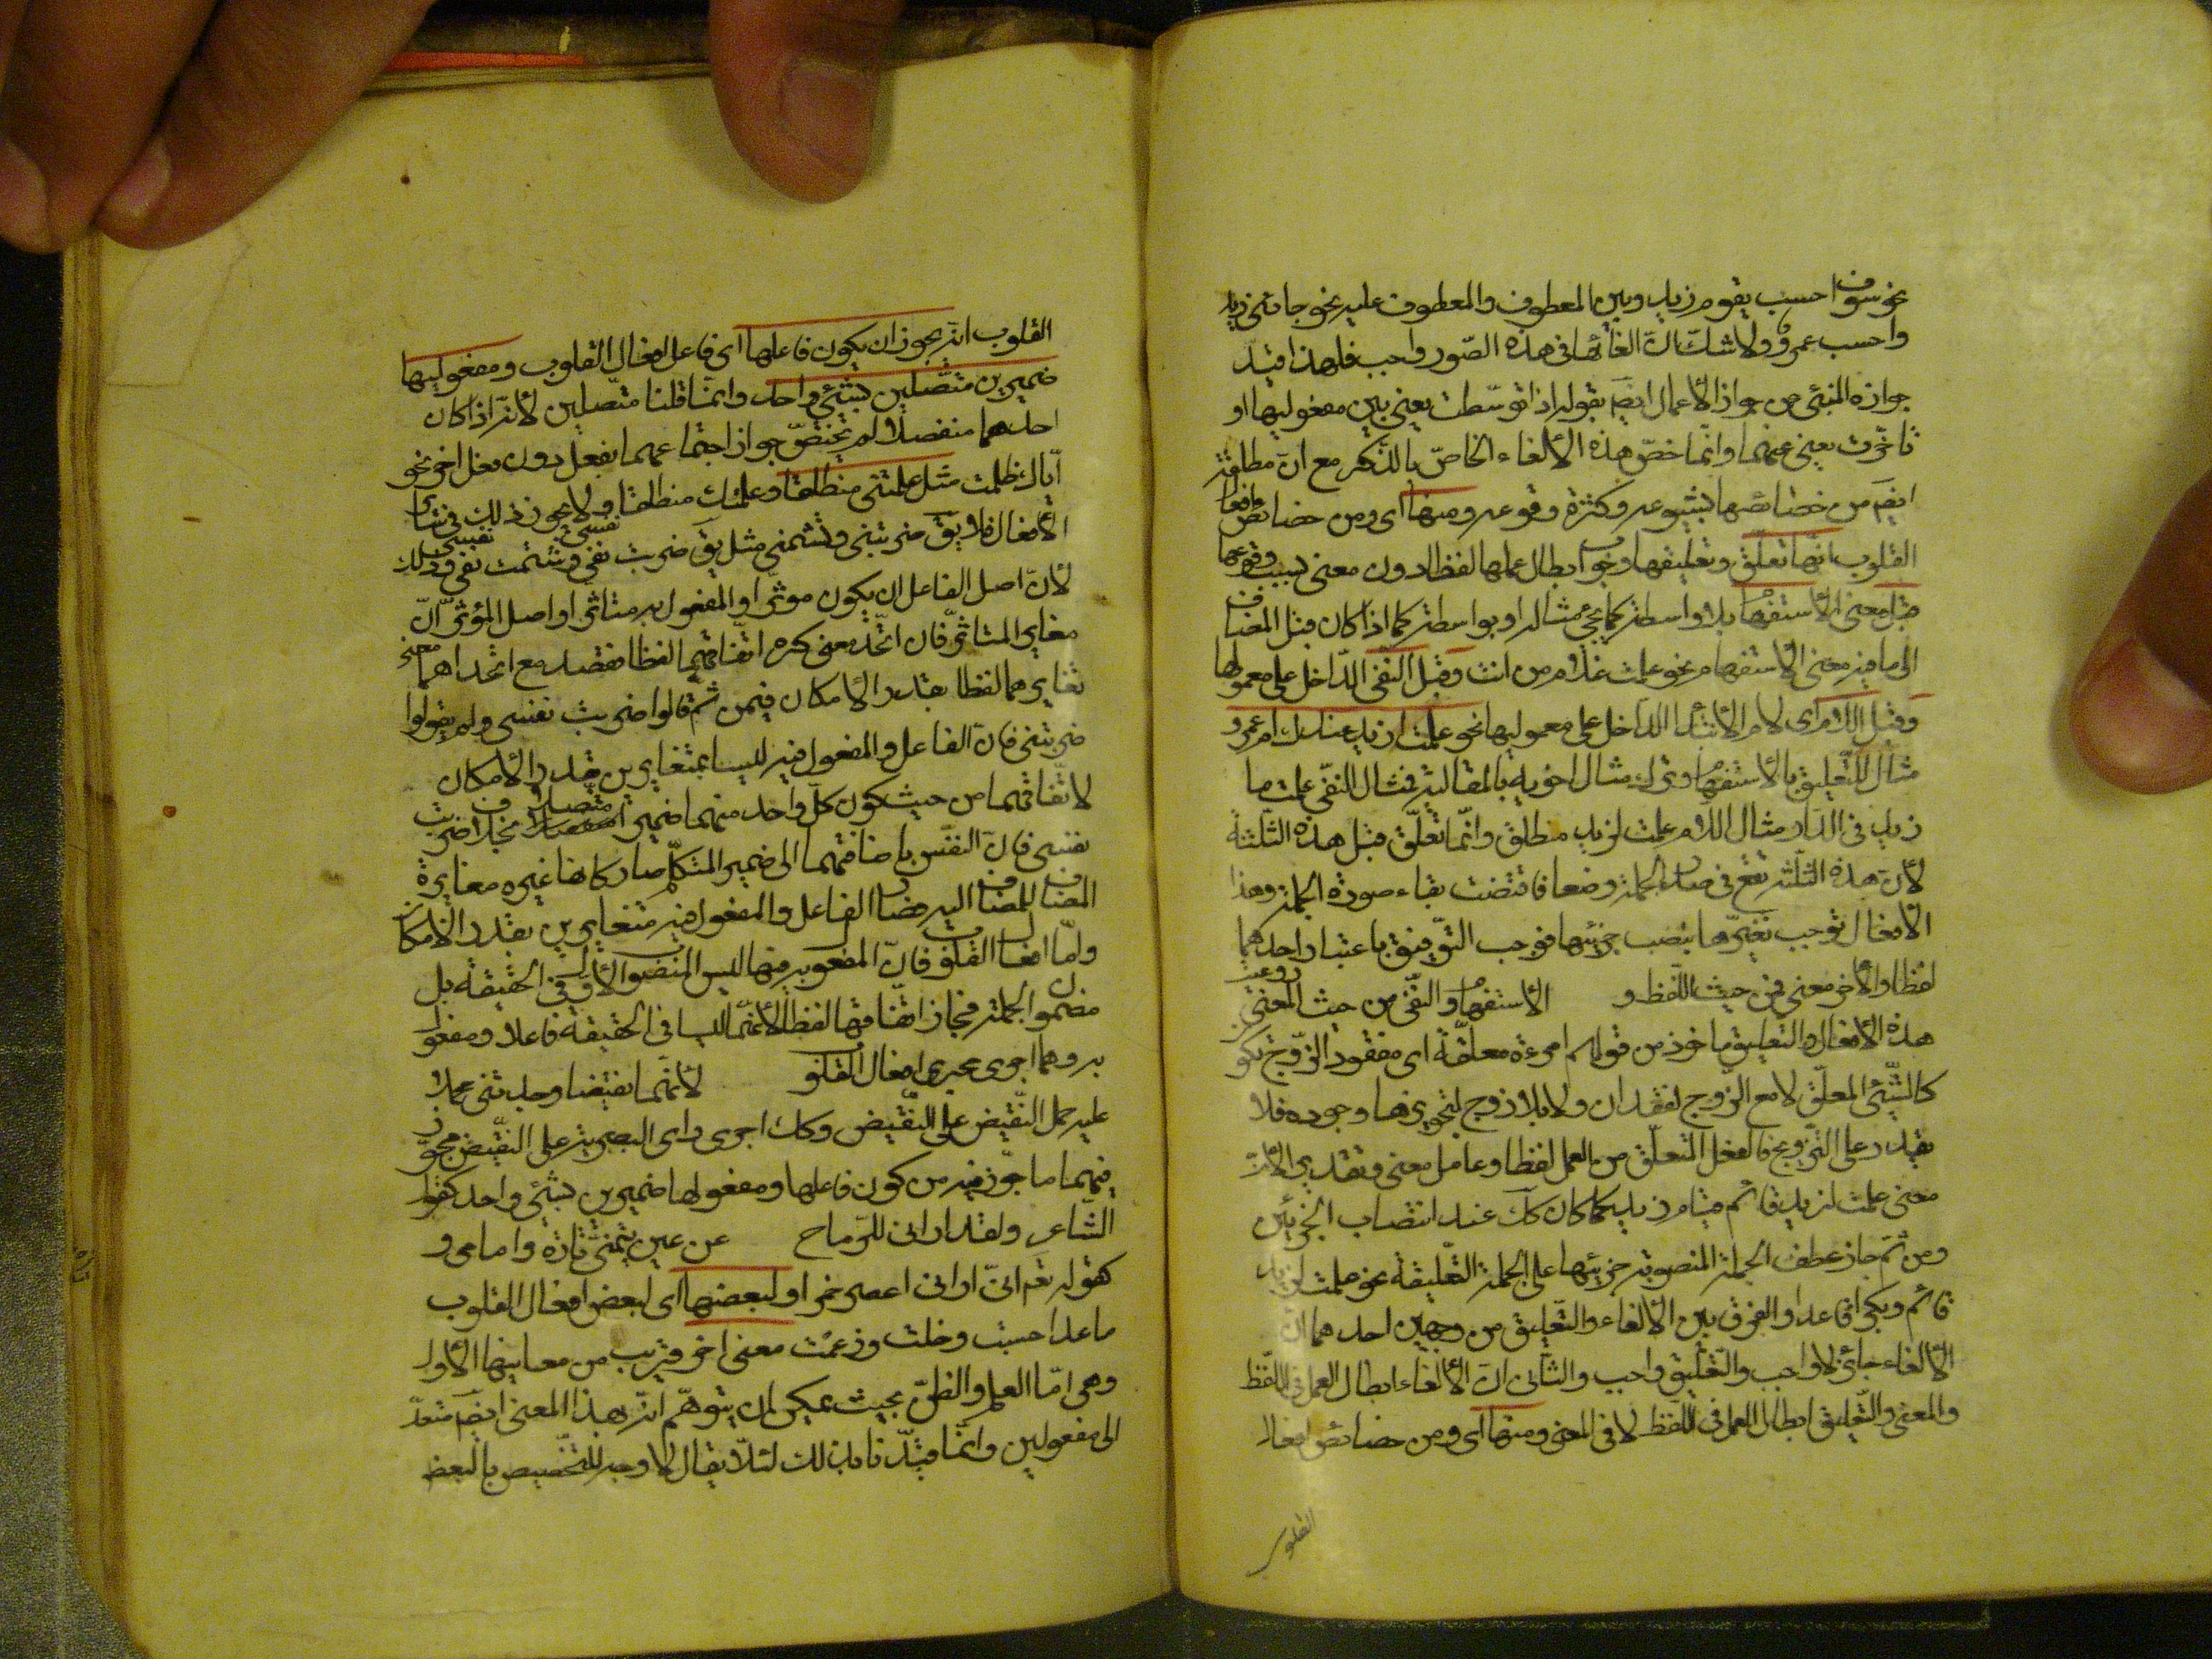 نحو سوف احسب يقوم زيد وبين المعطوف والمعطوف عليه نحو جاءنى زيد
واحسب عمرو ولا شك ان الغائها فى هذه الصّور واجب فلهذا قيّد
جوازه المنبئ عن جواز الأعمال ايضَ بقوله اذا توسّطت يعنى بين مفعوليها او
تأخّرت يعنى عنهما وانّما خصّ هذه الألغاء الخاصّ بالذّكر مع ان مطلقه
ايضَ من خصائصها لشيوعه وكثرة وقوعه ومنها اى ومن خصائص افعال
القلوب انّها تعلّق وتعليقها وجوب ابطال عملها لفظا دون معنى بسبب وقوعها
قبل معنى الأستفهام بلا واسطة كما يجئ مثاله او بواسطة كما اذا كان قبل المضاف
الى ما فيه معنى الاستفهام نحو علمت غلام من انت وقبل النّفى الدّاخل على معمولها
وقبل اللام اى لام الأبتداء الدّاخل على معموليها نحو علمت ازيد عندك ام عمرو
مثال للتّعليق بالأستفهام وترك مثال اخويه بالمقايسة فمثال النّفى علمت ما
زيد فى الدار مثال اللام علمت لزيد منطلق وانّما تعلّق قبل هذه الثلثة
لأن هذه الثلثة تقع فى صدر الجملة وضعا فاقتضت بقاء صورة الجملة وهذا
الأفعال توجب تغيّرها بنصب جزئيها فوجب التّوفيق باعتبار احدهما
لفظا والأخر معنى فمن حيث اللّفظ روعيت الأستفهام والنّفى من حيث المعنى
هذه الأفعال والتعليق ماخوذ من قولهم امرءة معلّقة اى مفقود الزّوج تكون
كالشّئ المعلّق لا مع الزّوج لفقدان ولا بلا زوج لتجويزها وجوده فلا
يقدر على التّزوج فالفعل المتعلّق من العمل لفظا وعامل معنى وتقديرا لأن
معنى علمت لزيد قائم قيام زيد كما كان كك عند انتصاب الجزئين
ومن ثم جاز عطف الجملة المنصوبة جزئيها على الجملة التّعليقة نحو علمت لزيد
قائم وبكرا قاعدا والفرق بين الألغاء والتّعليق من وجهين احدهما ان
الألغاء جائز لا واجب والتّعليق واجب والثّانى ان الألغاء ابطال العمل فى اللّفظ
والمعنى والتّعليق ابطال العمل فى اللّفظ لا فى المعنى ومنها اى ومن خصائص افعال
القلوب
القلوب انّه يجوز ان يكون فاعلها اى فاعل افعال القلوب ومفعوليها
ضميرين متّصلين لشئ واحد وانّما قلنا متّصلين لأنّه اذا كان
احدهما منفصلا لم يختصّ جواز اجتماعهما بفعل دون فعل اخر نحو
ايّاك ظلمت مثل علمتنى منطلقا وعلمتك منطلقا ولا يجوز ذلك فى سائر
الأفعال فلا يقَ ضربتنى وشتمتنى مثل يقَ ضربت نفسى وشتمت نفسى وذلك
لأنّ اصل الفاعل ان يكون موثرا والمفعول به متاثرا واصل المؤثّر ان
مغاير المتاثّر فان اتّحدا معنى كره اتّفاقهما لفظا فقصد مع اتحدهما معنى
تغايرهما لفظا بقدر الأمكان فمن ثم قالوا ضربت نفسى ولم يقولوا
ضربتنى فان الفاعل والمفعول فيه ليسا بمتغايرين بقدر الأمكان
لاتّفاقهما من حيث كون كلّ واحد منهما ضميرا متّصلا بخلاف ضربت
نفسى فان النفس باضافتهما الى ضمير المتكلّم صار كانها غيره مغايرة
المضاف للمضاف اليه فصار الفاعل والمفعول فيه متغايرين بقدر الأمكان
وامّا افعال القلوب فانّ المفعول به منها ليس المنصوب الأوّل فى الحقيقة بل
مضمون الجملة فجاز اتّفاقهما لفظا لأنّهما ليسا فى الحقيقة فاعلا ومفعولا
به ومما اجرى مجرى افعال القلوب لأنّهما نقيضا وجدتنى حملا
عليه حمل النّقيض على النّقيض وكك اجرى راى البصرية على النّقيض مجوّز
فيهما ما جوّز فيه من كون فاعلها ومفعولها ضميرين لشئ واحد كقول
الشاعر ولقد ارانى للرّماح عن عين يمنى تارة وامامى و
كقوله تعَم انىّ ارانى اعصر خمرا ولبعضها اى لبعض افعال القلوب
ما عدا حسبت وخلت وزعمت معنى اخر قريب من معانيها الأول
وهى امّا العلم والظنّ بحيث يمكن ان يتوهّم انّه بهذا المعنى ايضَ متعدّ
الى مفعولين وانّما قيّدنا بذلك لئلّا يقال لا وجه للتّخصيص بالبعض